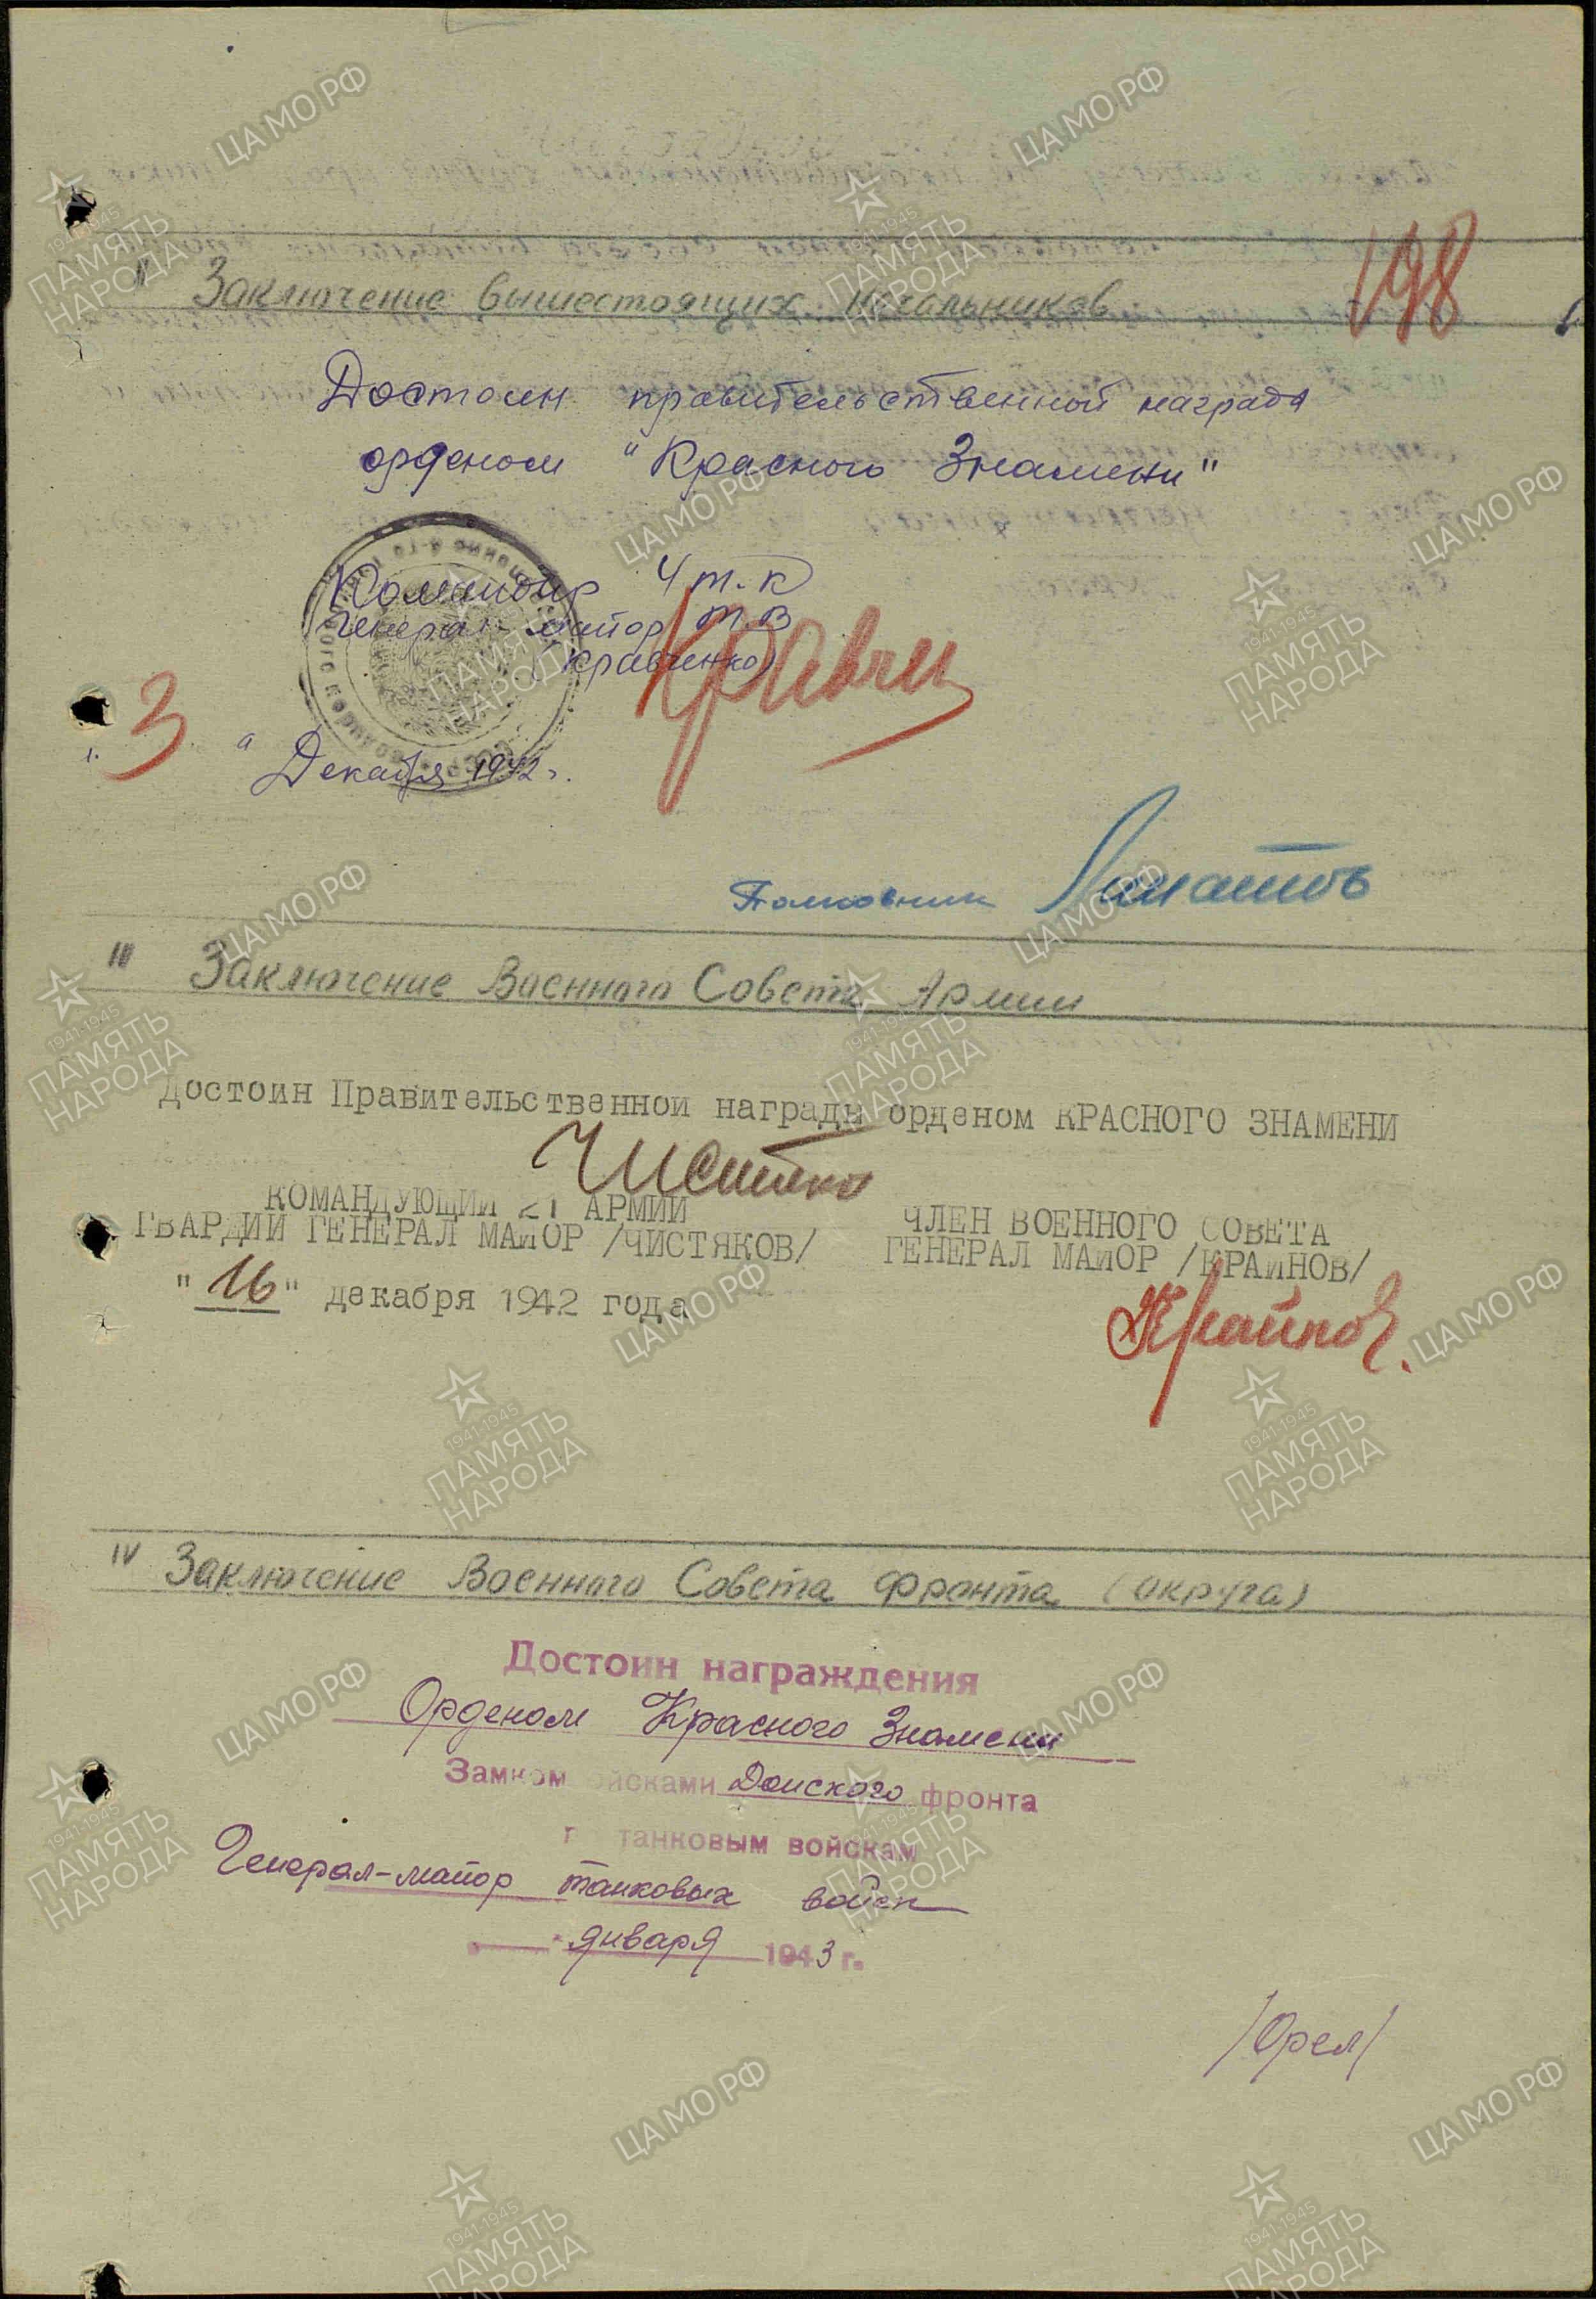 198
II Заключение вышестоящих начальников
Достоин правительственной награда
орденом "Красного Знамени"
Командир 4 т.к
генерал-майор т.в
(Кравченко)
Кравч
"3" Декабря 1942 г.
Полковник
III Заключение Военного Совета Армии
Достоин Правительственной награды орденом КРАСНОГО ЗНАМЕНИ
Чистяков
КОМАНДУЮЩИЙ 21 АРМИИ
ГВАРДИИ ГЕНЕРАЛ МАЙОР /ЧИСТЯКОВ/
ЧЛЕН ВОЕННОГО СОВЕТА
ГЕНЕРАЛ МАЙОР /КРАЙНОВ/
"16" декабря 1942 года
Крайнов.
IV Заключение Военного Совета фронта (округа)
Достоин награждения
Орденом Красного Знамени
Замком войсками Донского фронта
по танковым войскам
Генерал-майор танковых войск
января 1943 г.
/Орел/
ЦАМО РФ
1941-1945
ПАМЯТЬ
НАРОДА